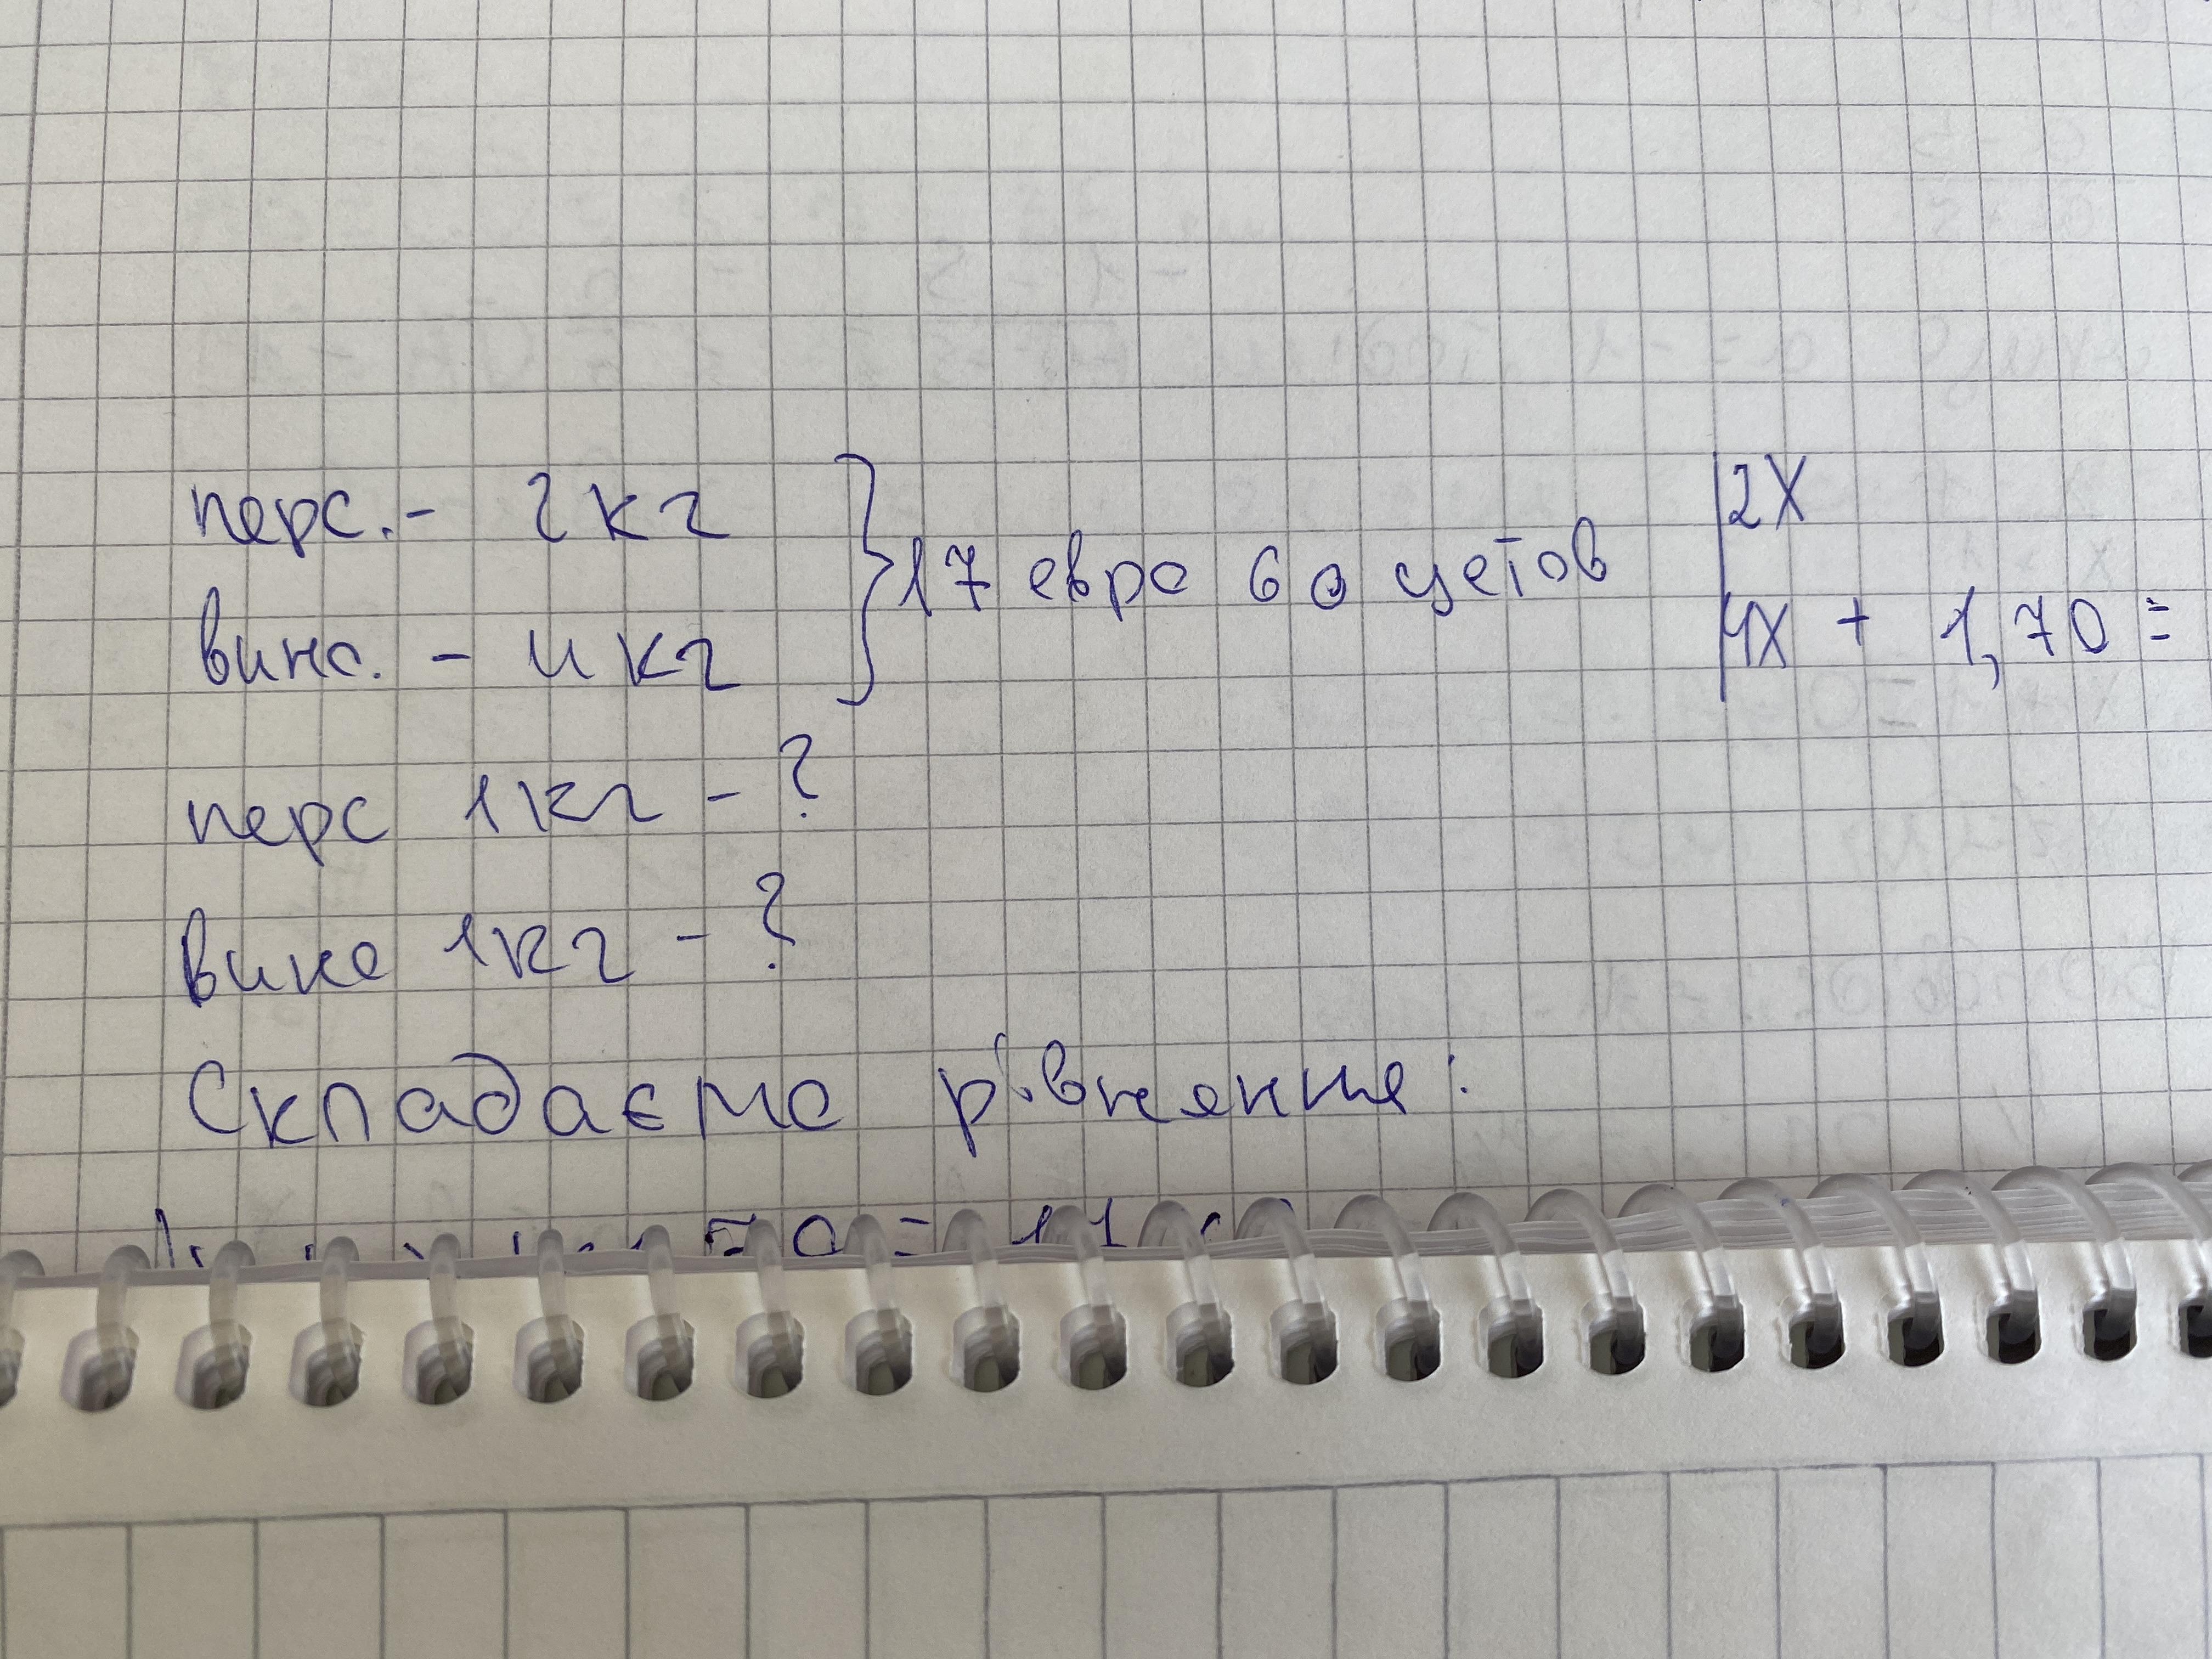 перс. - 2 кг
вино. - 4 кг
} 17 евро 60 цетов
2X
4X + 1,70 =
перс 1кг - ?
вино 1кг - ?
Складаємо рівняння:
70 =